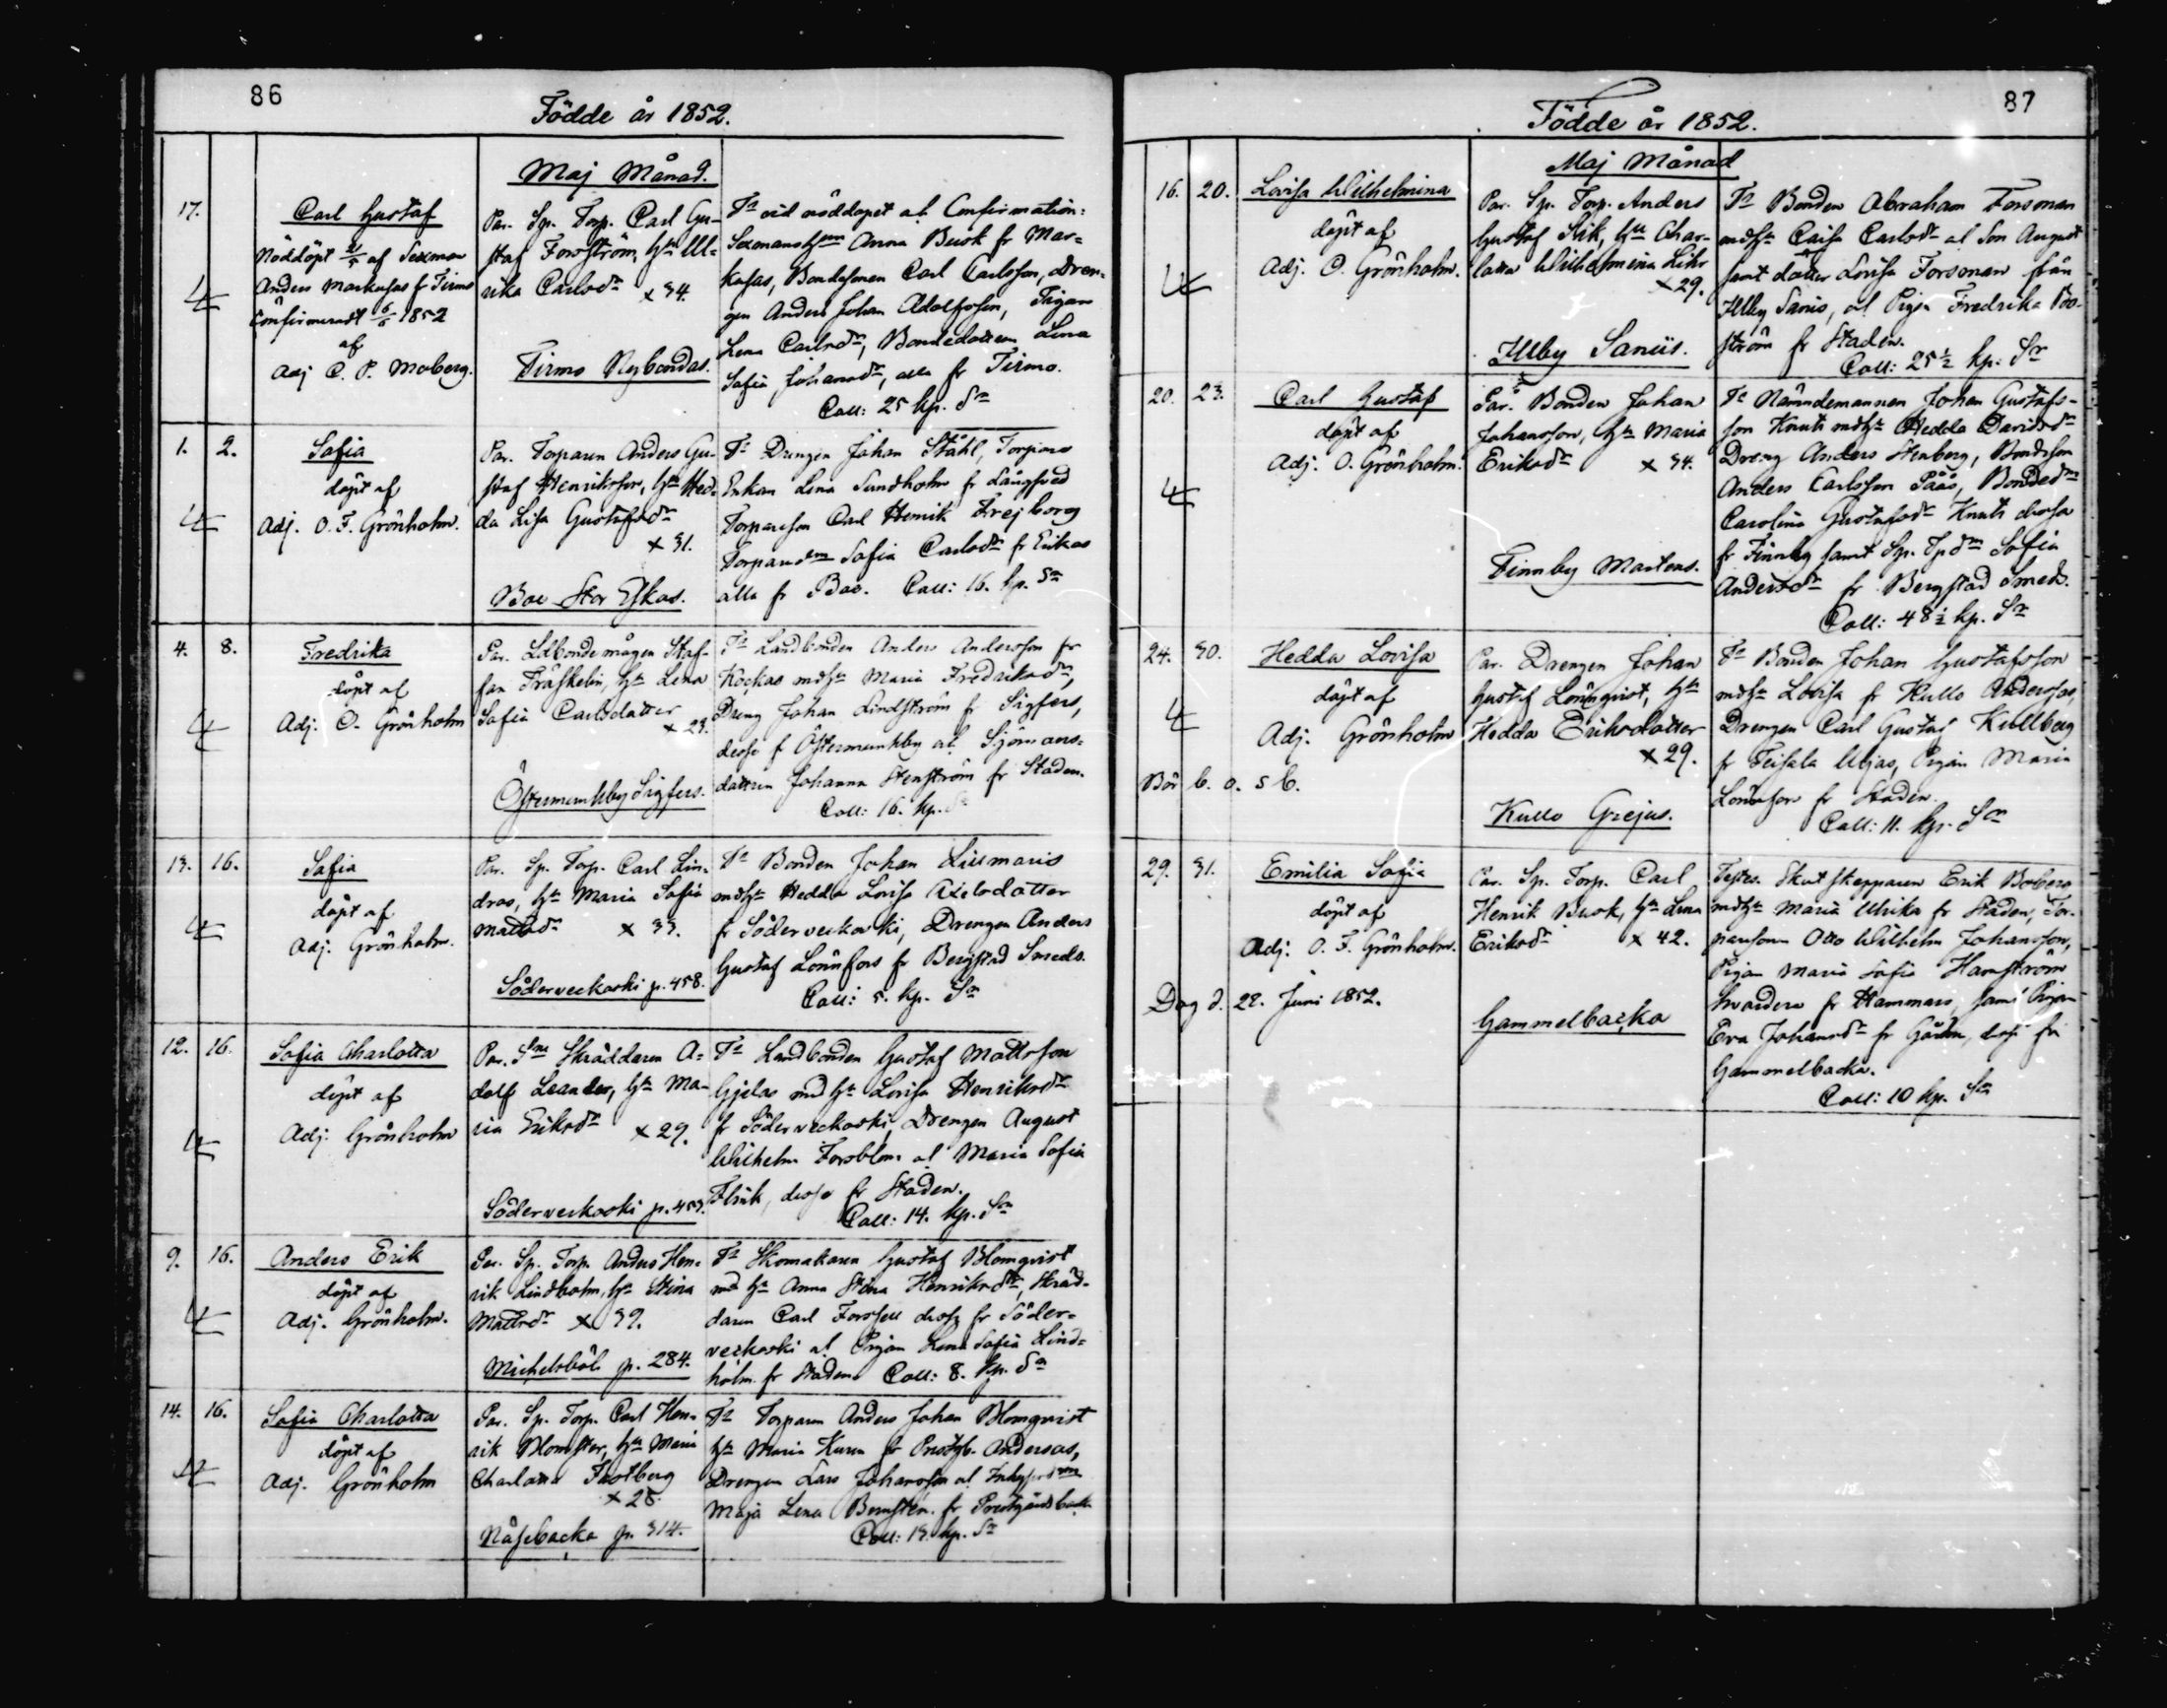 86
Födde år 1852.
Maj Månad.
17.
Carl Gustaf
Nöddöpt 21/5 af Sexman
Anders Markusas fr Tirmo
Confirmeradt 6/6 1852
af
Adj C. P. Moberg.
Par. Sp. Torp. Carl Gu-
staf Forsström, hu Ul-
rika Carlsdr x 34.
Tirmo Nybondas.
Ts vid nöddopet al. Confirmation:
Sexmanshun Anna Busk fr Mar-
kusas, Bondesonen Carl Carlsson, Dren-
gen Anders Johan Adolfsson, Pigan
Lena Carlsdr, Bondedottren Lena
Sofia Johansdr, alla fr Tirmo.
Coll: 25 kp. Sr
1. 2.
Sofia
döpt af
Adj. O. F. Grönholm.
Par. Torparen Anders Gu-
staf Henriksson, hu Hed-
da Lisa Gustafsdr
x 31.
Boe Stor Eskas.
Ts Drengen Johan Ståhl, Torpare
Enkan Lena Sundholm fr Långsted
Torparson Carl Henrik Frejborg
Torparedm Sofia Carlsdr fr Erikas
alla fr Boe. Coll: 16. kp. Sr
4. 8.
Fredrika
döpt af
Adj. O. Grönholm
Par. Ldbondemågen Staf-
fan Träskelin, hu Lena
Sofia Carlsdotter
x 23.
Östermunkby Sigfers.
Ts Landbonden Anders Andersson fr
Kockas mdhu Maria Fredriksdr,
Dreng Johan Lindström fr Sigfers,
desse f Östermunkby al. Sjömans-
dottren Johanna Stenström fr Staden.
Coll: 16. kp. Sr
13. 16.
Sofia
döpt af
Adj. Grönholm.
Par. Sp. Torp. Carl Lin-
dros, hu Maria Sofia
Mattsdr x 33.
Söderveckoski p. 458.
Ts Bonden Johan Liumaris
mdhu Hedda Lovisa Axelsdotter
fr Söderveckoski, Drengen Anders
Gustaf Lönnfors fr Bergstad Smeds.
Coll: 5. kp. Sr
12. 16.
Sofia Charlotta
döpt af
Adj. Grönholm
Par. Skräddaren A-
dolf Leander, hu Ma-
ria Eriksdr x 29.
Söderveckoski p. 453.
Ts Landbonden Gustaf Mattsson
Gjelas mdhu Lovisa Henriksdr
fr Söderveckoski, Drengen August
Wilhelm Forsblom al Maria Sofia
Flink, desse fr Staden.
Coll: 14. kp. Sr
9. 16.
Anders Erik
döpt af
Adj. Grönholm.
Par. Sp. Torp. Anders Hen-
rik Lindholm, hu Stina
Mattsdr x 39.
Michelsböle p. 284.
Ts Skomakaren Gustaf Blomqvist
md hu Anna Stina Henriksdr, Skräd-
daren Carl Forssell desse fr Söder-
veckoski al Pigan Lena Sofia Lind-
holm fr Staden. Coll: 8. kp. Sr
14. 16.
Sofia Charlotta
döpt af
Adj. Grönholm
Par. Sp. Torp. Carl Hen-
rik Blomster, hu Maria
Charlotta Frostberg
x 28.
Näsebacka p. 314.
Ts Torparen Anders Johan Blomqvist
hu Maria fr Prestgb. Andersas,
Drengen Lars Johansson al
Maja Lena fr Prestgårdsbacka
Coll: 13. kp. Sr
87
Födde år 1852.
Maj Månad
16. 20.
Lovisa Wilhelmina
döpt af
Adj. O. Grönholm.
Par. Sp. Torp. Anders
Gustaf Slik, hu Char-
lotta Wilhelmina Lihr
x 29.
Illby Saniis.
Ts Bonden Abraham Forsman
mdhu Caisa Carlsdr al Son August
samt dotter Lovisa Forsman från
Illby Saniis, al Pigan Fredrika Bo-
ström fr Staden.
Coll: 25 1/2 kp. Sr
20. 23.
Carl Gustaf
döpt af
Adj. O. Grönholm.
Par. Bonden Johan
Johansson, hu Maria
Eriksdr x 34.
Finnby Martens.
Ts Nämndemannen Johan Gustafs-
son Knuts mdhu Hedda Davidsdr
Dreng Anders Stenberg, Bondeson
Anders Carlsson Pååss, Bondedm
Carolina Gustafsdr Knuts dessa
fr Finnby samt Sp. Tpdm Sofia
Andersdr fr Bergstad Smeds.
Coll: 48 1/2 kp. Sr
24. 30.
Hedda Lovisa
döpt af
Adj. Grönholm
Bör b. o. s b.
Par. Drengen Johan
Gustaf Lönnqvist, hu
Hedda Eriksdotter
x 29.
Kullo Grejus.
Ts Bonden Johan Gustafsson
mdhu Lovisa fr Kullo Anderssas,
Drengen Carl Gustaf Kullberg
fr Teisala Uljas, Pigan Maria
fr Staden.
Coll: 11. kp. Sr
29. 31.
Emilia Sofia
döpt af
Adj. O. F. Grönholm.
Dog d. 22. Juni 1852.
Par. Sp. Torp. Carl
Henrik Busk, hu Lena
Eriksdr x 42.
Gammelbacka
Testes. Skutskepparen Erik Boberg
mdhu Maria Ulrika fr Staden, Tor-
paresonen Otto Wilhelm Johansson,
Pigan Maria Sofia Hamström
fr Hammars, samt Pigan
Eva Johansdr fr Gården, desse fr
Gammelbacka.
Coll: 10 kp. Sr